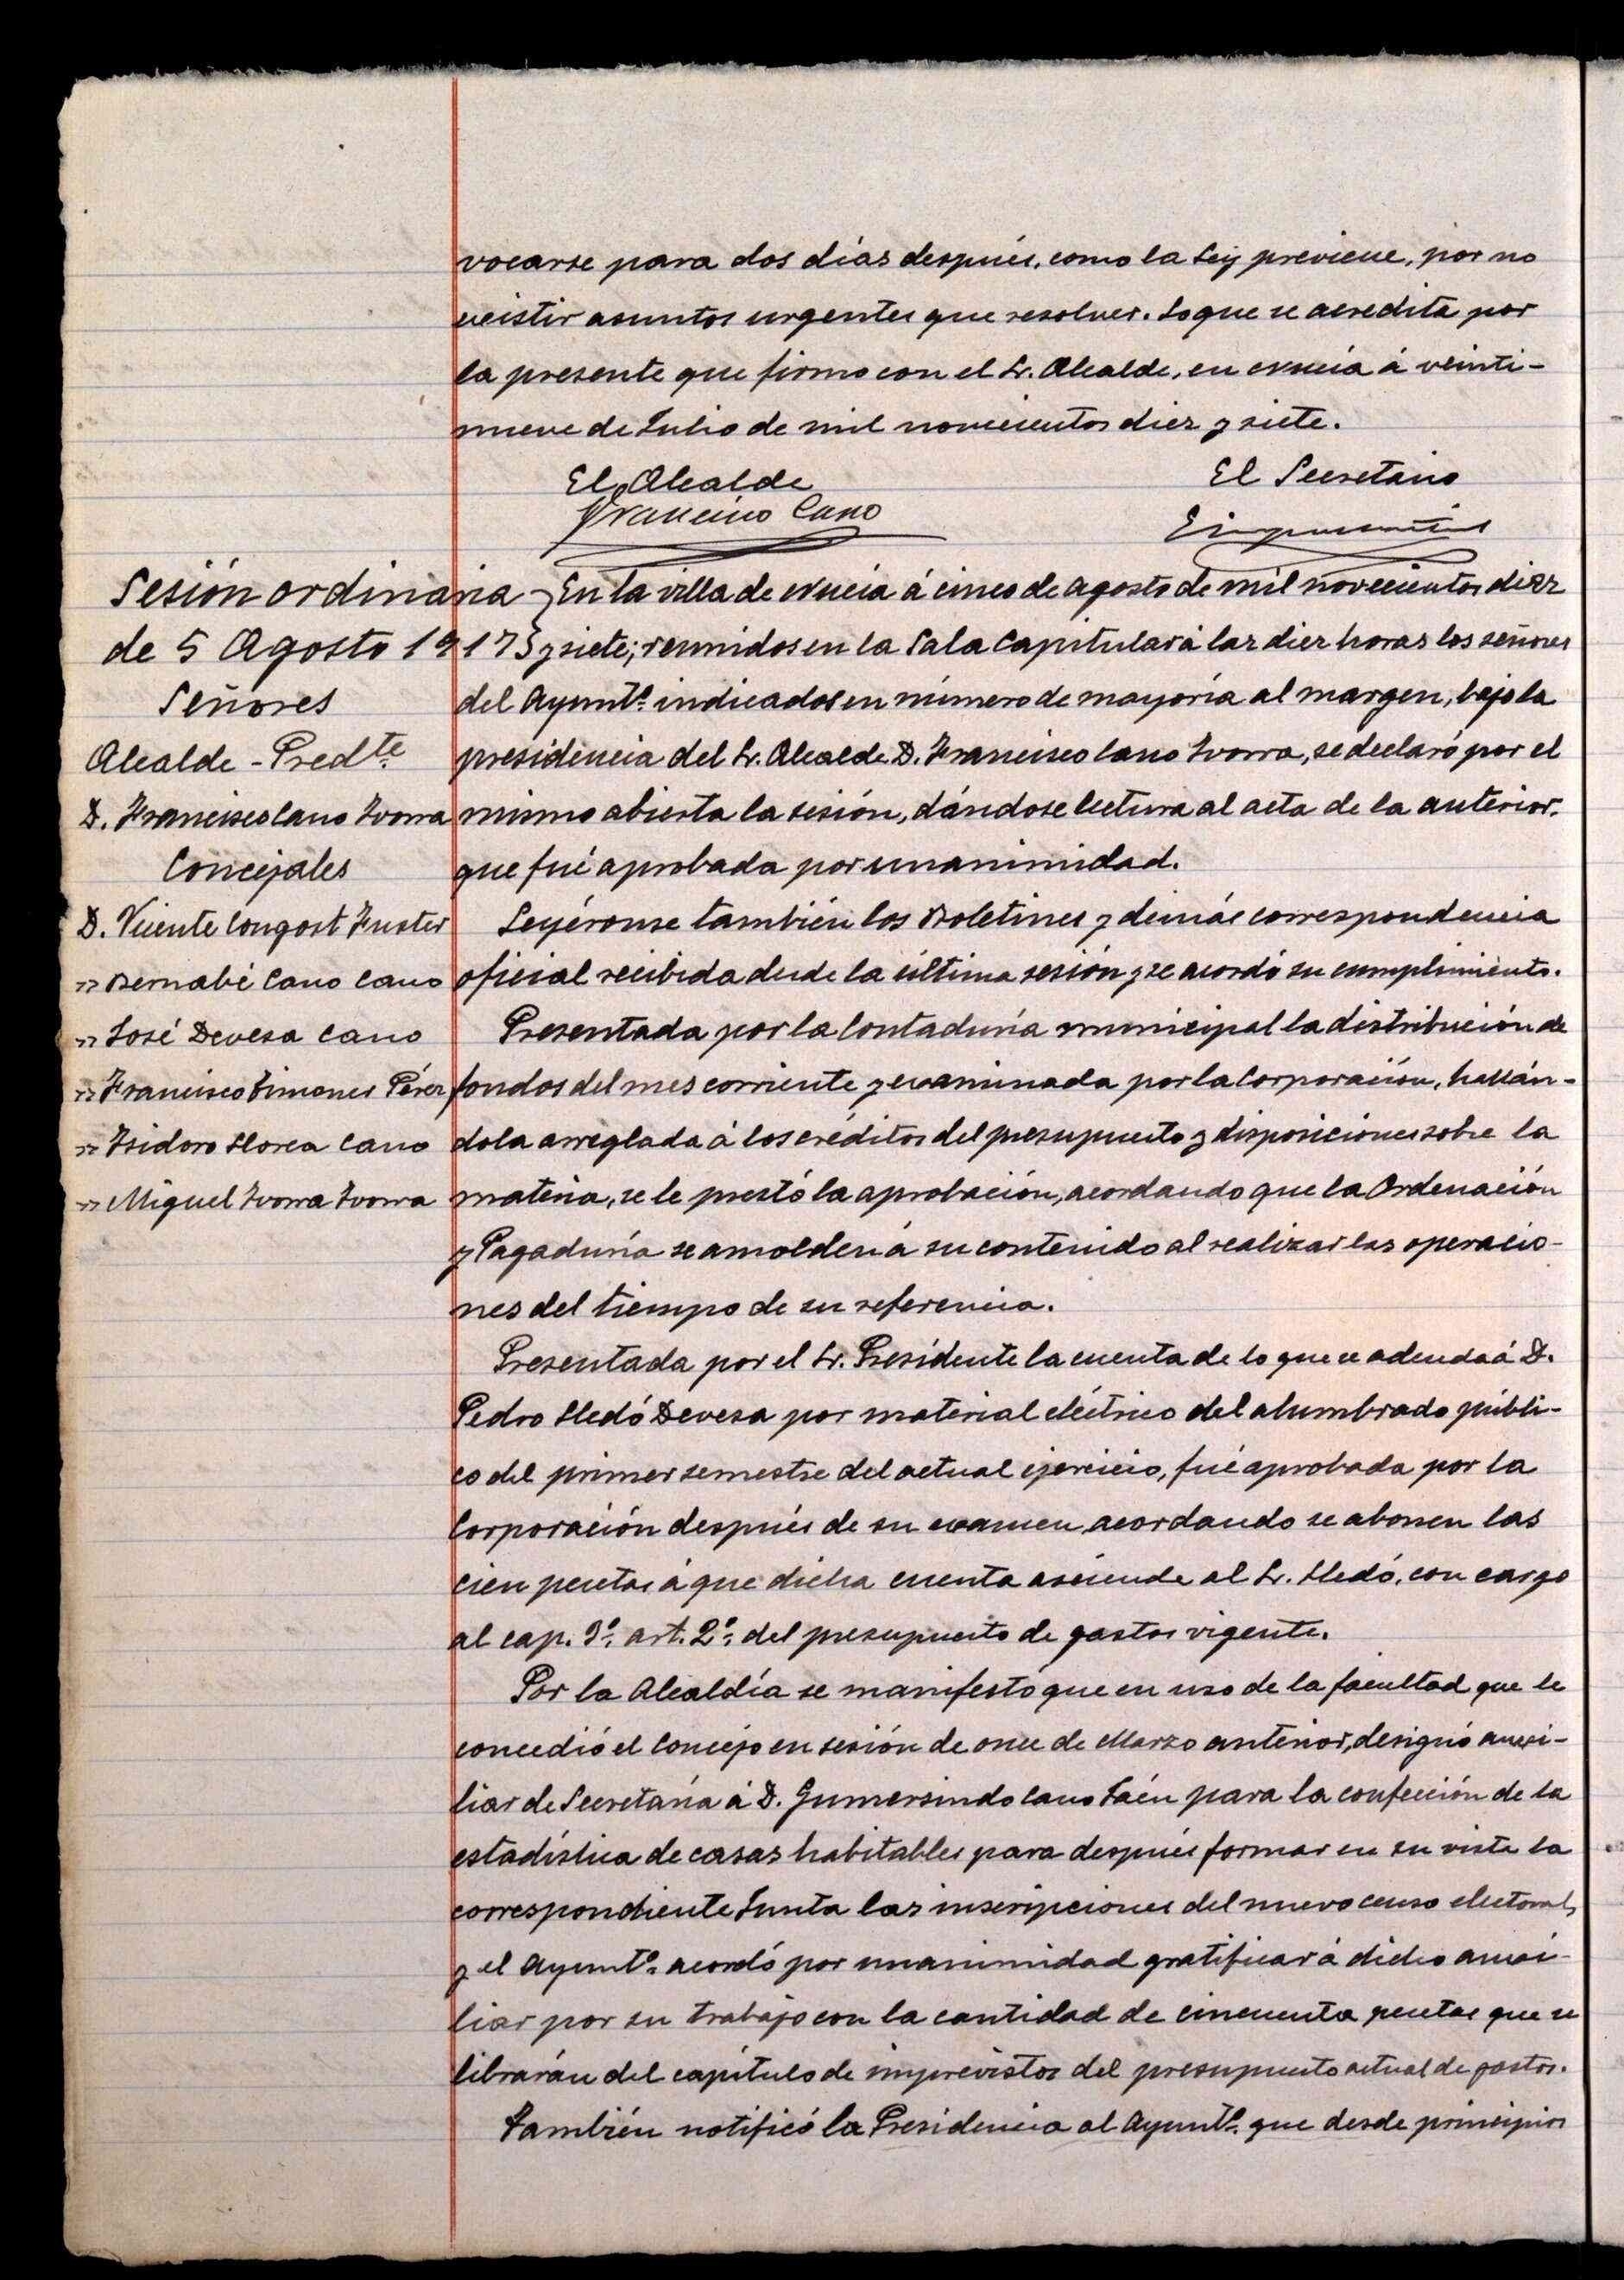 vocarse para dos días después, como la Ley previene, por no
existir asuntos urgentes que resolver. Lo que se acredita por
la presente que firmo con el Sr. Alcalde, en Nucía á veinti-
nueve de Julio de mil novecientos diez y siete.
El Alcalde
Francisco Cano
El Secretario
Sesión ordinaria
de 5 Agosto 1917
Señores
Alcalde - Predte.
D. Francisco Cano Ivorra
Concejales
D. Vicente Congost Fuster
" Bernabé Cano Cano
" José Devesa Cano
" Francisco Timoner Pérez
" Isidoro Llorca Cano
" Miguel Ivorra Ivorra
En la villa de Nucía á cinco de agosto de mil novecientos diez
y siete; reunidos en la Sala Capitular á las diez horas los señores
del Ayuntº. indicados en número de mayoría al margen, bajo la
presidencia del Sr. Alcalde D. Francisco Cano Ivorra, se declaró por el
mismo abierta la sesión, dándose lectura al acta de la anterior,
que fué aprobada por unanimidad.
Leyéronse también los Boletines y demás correspondencia
oficial recibida desde la última sesión y se acordó su cumplimiento.
Presentada por la Contaduría municipal la distribución de
fondos del mes corriente y examinada por la Corporación, hallán-
dola arreglada á los créditos del presupuesto y disposiciones sobre la
materia, se le prestó la aprobación, acordando que la Ordenación
y Pagaduría se amolden á su contenido al realizar las operacio-
nes del tiempo de su referencia.
Presentada por el Sr. Presidente la cuenta de lo que se adeuda á D.
Pedro Lledó Devesa por material eléctrico del alumbrado públi-
co del primer semestre del actual ejercicio, fué aprobada por la
Corporación después de su examen, acordando se abonen las
cien pesetas á que dicha cuenta asciende al Sr. Lledó, con cargo
al cap. 3º. art. 2º. del presupuesto de gastos vigente.
Por la Alcaldía se manifestó que en uso de la facultad que le
concedió el Concejo en sesión de once de Marzo anterior, designó auxi-
liar de Secretaría á D. Gumersindo Cano Jaén para la confección de la
estadística de casas habitables para después formar en su vista la
correspondiente Junta las inscripciones del nuevo censo electoral,
y el Ayuntº. acordó por unanimidad gratificar á dicho auxi-
liar por su trabajo con la cantidad de cincuenta pesetas que se
librarán del capítulo de imprevistos del presupuesto actual de gastos.
También notificó la Presidencia al Ayuntº. que desde principios